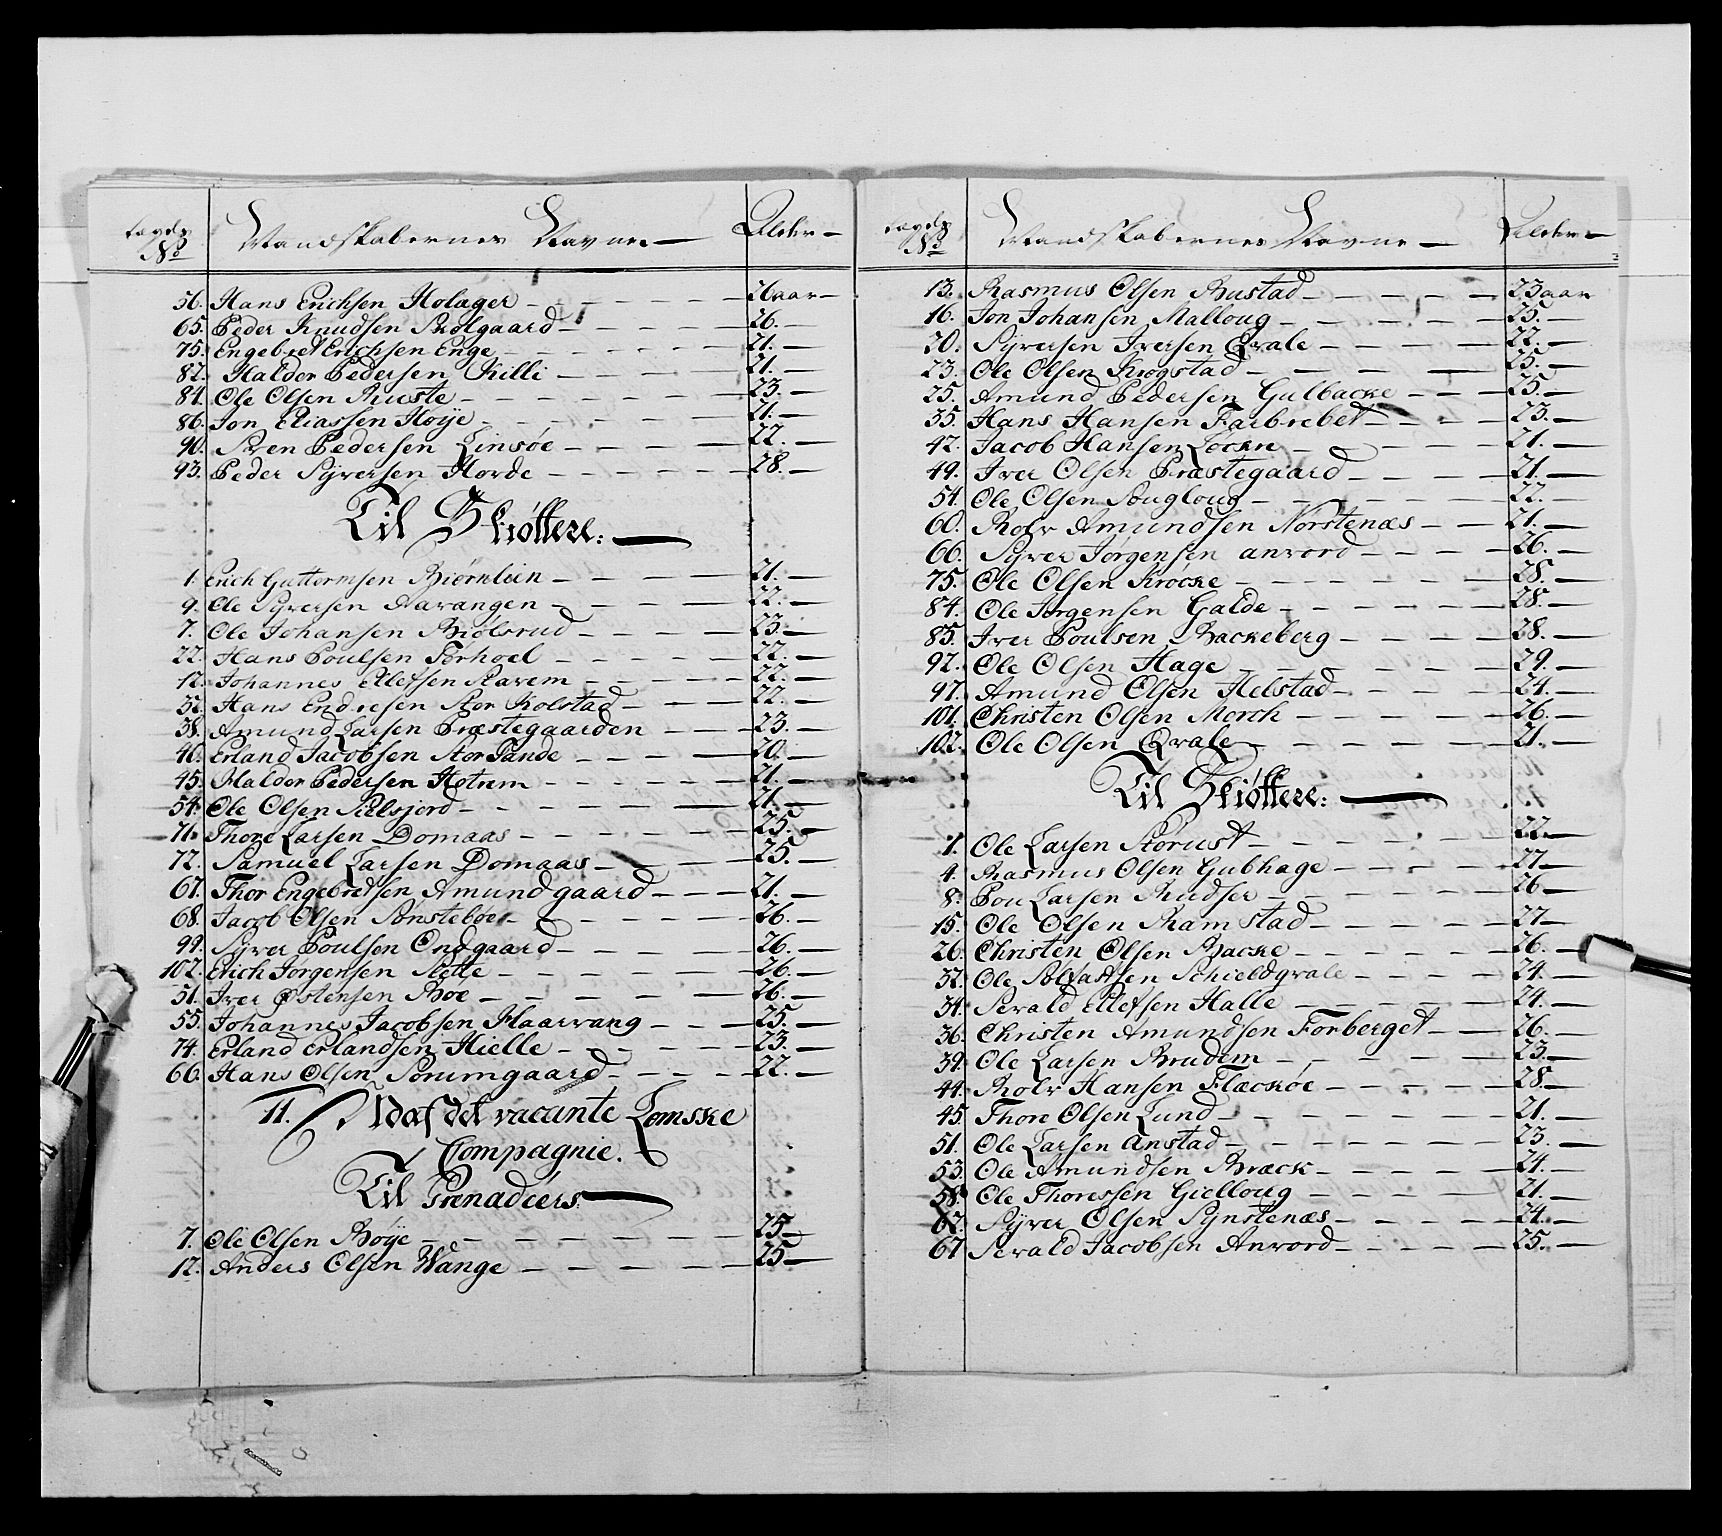 Lægds No Mandskabernes Navne Alder
56. Hans Erichsen Holager 26 aar
65. Peder Knudsen Solgaard 26.
75. Engebret Erichsen Enge 21.
82. Haldor Pedersen Killi 21.
84. Ole Olsen Ruste 23.
86. Jon Eliassen Høye 21.
90. Sven Pedersen Linsøe 22.
93. Peder Syversen Horde 28.
Til Skiøttere:
1. Erich Guttormsen Biørnlien 21.
9. Ole Syversen Aavangen 22.
7. Ole Johansen Biølsrud 23.
22. Hans Poulsen Forhoel 22.
12. Johannes Ellefsen Aavem 22.
32. Hans Endresen Stor Kolstad 22.
38. Amund Larsen Præstegaarden 23.
40. Erland Jacobsen Stor Sande 20.
45. Haldor Pedersen Hotrem 21.
54. Ole Olsen Selsjord 21.
71. Thore Larsen Domaas 25.
72. Samuel Larsen Domaas 25.
67. Thor Engebretsen Amundgaard 21.
68. Jacob Olsen Sønsteboer 26.
99. Syver Poulsen Ondgaard 26.
102. Erich Jorgensen Slette 26.
51. Iver Østensen Boe 26.
55. Johannes Jacobsen Flaarvang 25.
74. Erland Erlandsen Hielle 23.
66. Hans Olsen Sorumgaard 22.
11. Ud af det vacante Lomske
Compagnie.
Til Grenadeers
7. Ole Olsen Bøye 25
12. Anders Olsen Wange 25
Lægds No Mandskabernes Navne Alder
13. Rasmus Olsen Rustad 23 aar
16. Jon Johansen Malloug 25.
20. Syversen Iversen Qvale 22.
23. Ole Olsen Krogstad 25.
25. Amund Pedersen Gulbacke 25.
35. Hans Hansen Farbrebet 23.
42. Jacob Hansen Løckre 21.
49. Iver Olsen Præstegaard 21.
54. Ole Olsen Sougloug 22.
60. Rolv Amundsen Norstenæs 21.
66. Syver Jørgensen anvord 26.
75. Ole Olsen Krocke 28.
84. Ole Jørgensen Galde 28.
85. Iver Poulsen Backeberg 28.
92. Ole Olsen Hage 29.
97. Amund Olsen Helstad 24.
101. Christen Olsen Morck 26.
102. Ole Olsen Qvale 21.
Til Skiøttere:
1. Ole Larsen Storust 22.
4. Rasmus Olsen Gubhage 27
8. Pou Larsen Rudser 26
15. Ole Olsen Ramstad 27
26. Christen Olsen Backe 26.
32. Ole Solfastsen Schieldqvale 24.
34. Sevald Ellefsen Halle 24.
36. Christen Amundsen Forberget 26.
39. Ole Larsen Brudem 23.
44. Rolv Hansen Flæckøe 28
45. Thore Olsen Lund 21.
51. Ole Larsen Anstad 23.
53. Ole Amundsen Bræck 24.
58. Ole Thoressen Gielloug 21.
67. Syver Olsen Synstenæs 24.
67 Sevald Jacobsen Anvord 25.